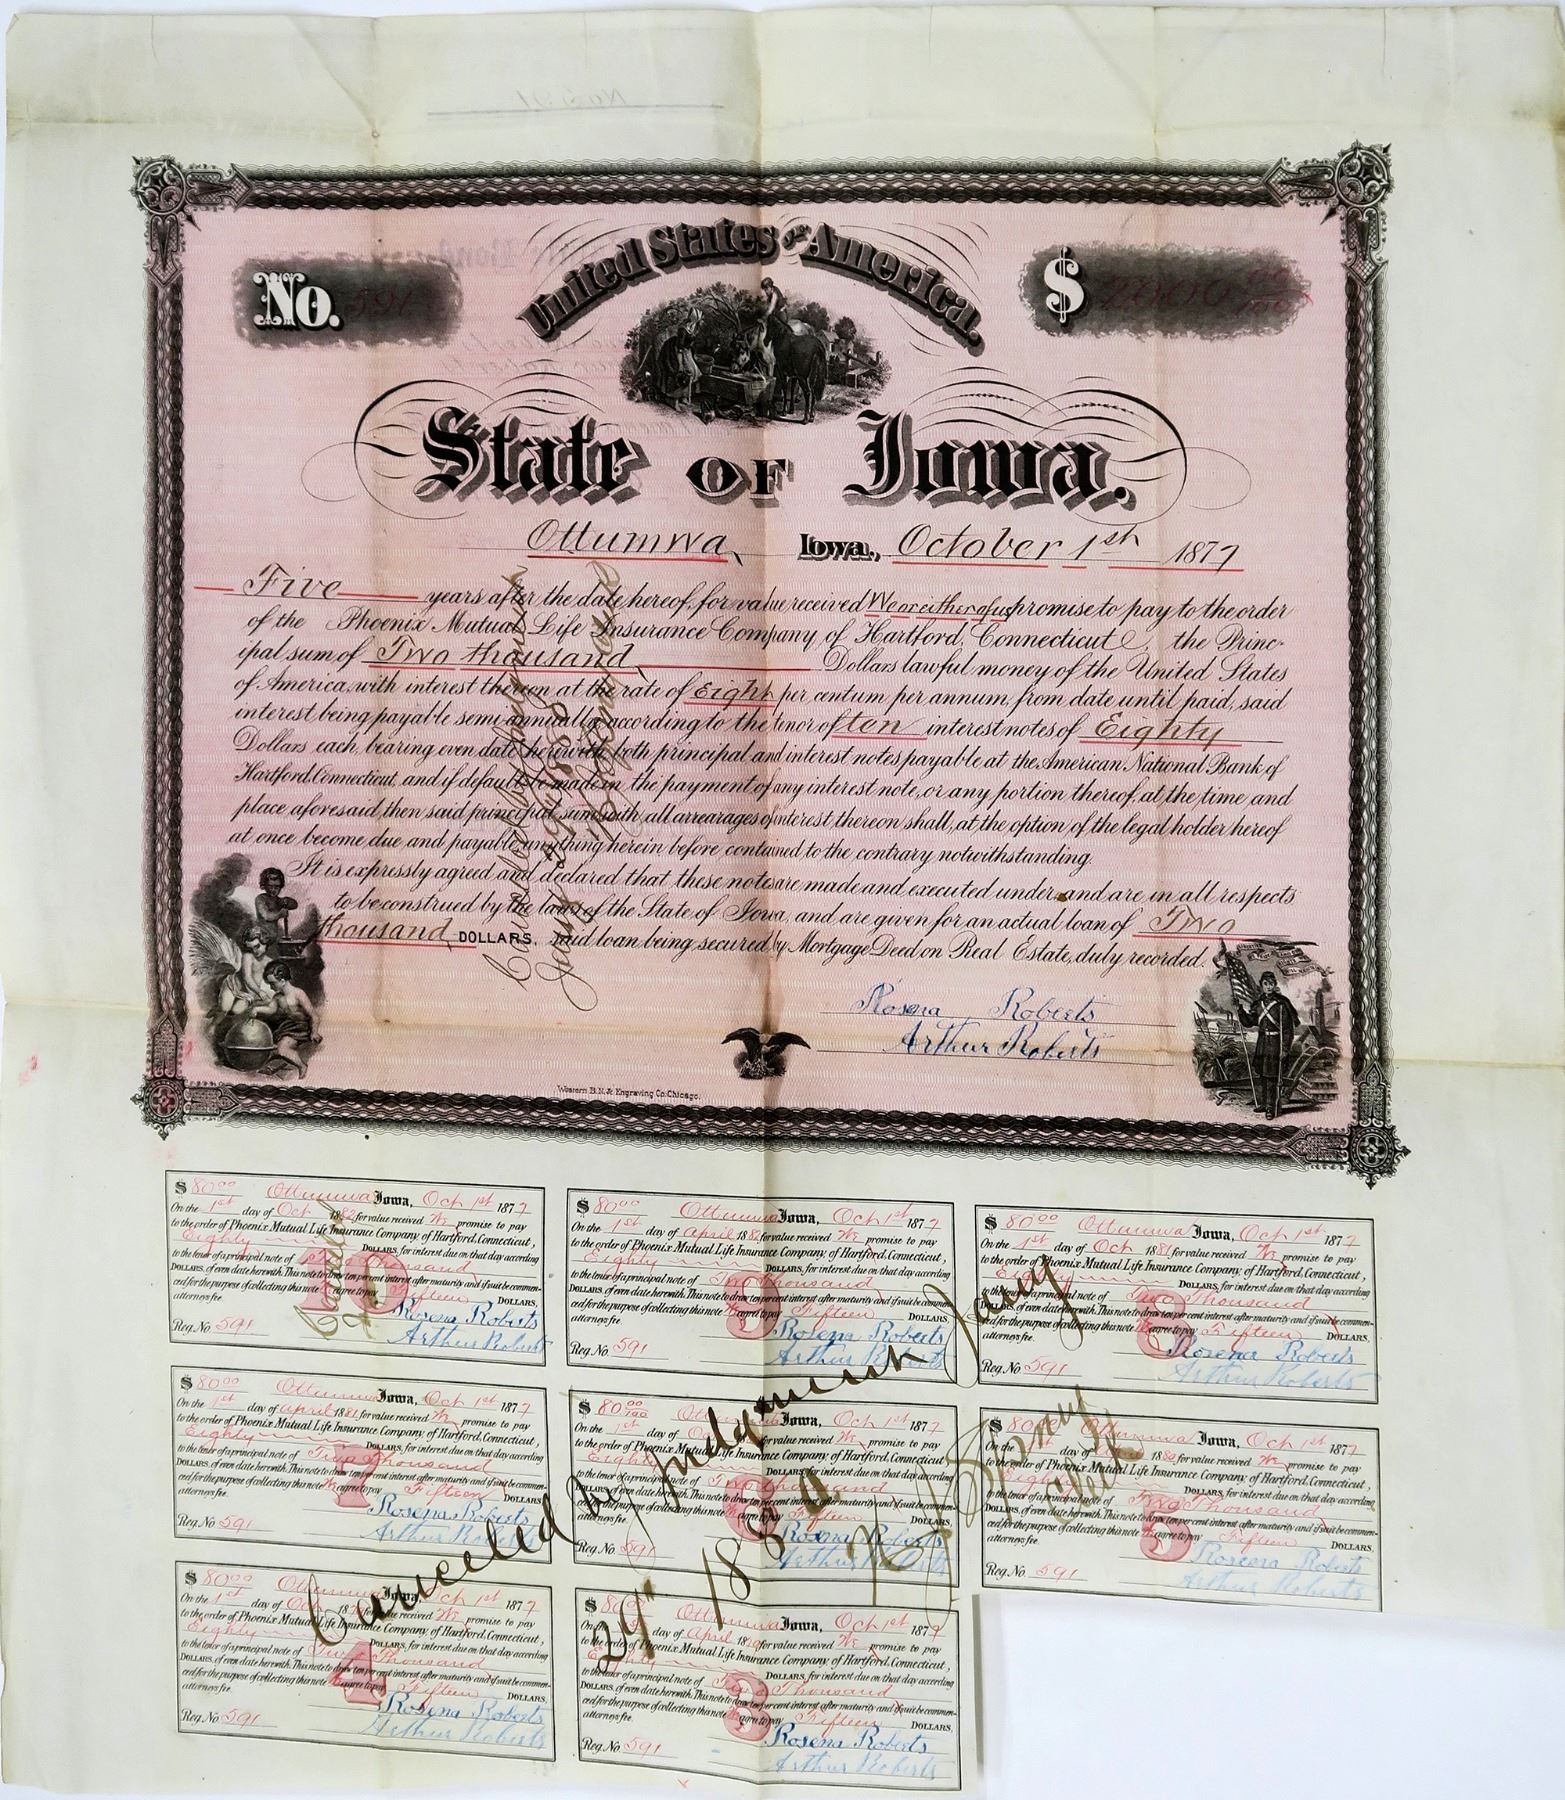 United States of America.
No. 591
$ 2000 00/100
State of Iowa.
Ottumwa, Iowa, October 1st 1877
Five years after the date hereof, for value received We or either of us promise to pay to the order
of the Phoenix Mutual Life Insurance Company of Hartford, Connecticut, the Princ-
ipal sum of Two thousand Dollars lawful money of the United States
of America, with interest thereon at the rate of Eight per centum per annum, from date until paid, said
interest being payable semi-annually according to the tenor of ten interest notes of Eighty
Dollars each, bearing even date herewith, both principal and interest notes payable at the American National Bank of
Hartford, Connecticut, and if default be made in the payment of any interest note, or any portion thereof, at the time and
place aforesaid, then said principal sum, with all arrearages of interest thereon shall, at the option of the legal holder hereof
at once become due and payable, anything herein before contained to the contrary notwithstanding.
It is expressly agreed and declared that these notes are made and executed under, and are in all respects
to be construed by the laws of the State of Iowa, and are given for an actual loan of Two
thousand, DOLLARS, said loan being secured by Mortgage Deed on Real Estate, duly recorded.
Rosena Roberts
Arthur Roberts
Western B.N. & Engraving Co. Chicago.
Cancelled by Judgment
Jany 29th 1880
$ 80 00 Ottumwa Iowa, Oct 1st 1877
On the 1st day of Oct 1882 for value received We promise to pay
to the order of Phoenix Mutual Life Insurance Company of Hartford, Connecticut,
Eighty DOLLARS, for interest due on that day according
to the tenor of a principal note of Two Thousand
DOLLARS, of even date herewith. This note to draw ten per cent interest after maturity and if suit be commen-
ced for the purpose of collecting this note We agree to pay Fifteen DOLLARS,
attorneys fee.
10
Rosena Roberts
Reg. No. 591 Arthur Roberts
$ 80 00 Ottumwa Iowa, Oct 1st 1877
On the 1st day of April 1882 for value received We promise to pay
to the order of Phoenix Mutual Life Insurance Company of Hartford, Connecticut,
Eighty DOLLARS, for interest due on that day according
to the tenor of a principal note of Two Thousand
DOLLARS, of even date herewith. This note to draw ten per cent interest after maturity and if suit be commen-
ced for the purpose of collecting this note We agree to pay Fifteen DOLLARS,
attorneys fee.
9
Rosena Roberts
Reg. No. 591 Arthur Roberts
$ 80 00 Ottumwa Iowa, Oct 1st 1877
On the 1st day of Oct 1881 for value received We promise to pay
to the order of Phoenix Mutual Life Insurance Company of Hartford, Connecticut,
Eighty DOLLARS, for interest due on that day according
to the tenor of a principal note of Two Thousand
DOLLARS, of even date herewith. This note to draw ten per cent interest after maturity and if suit be commen-
ced for the purpose of collecting this note We agree to pay Fifteen DOLLARS,
attorneys fee.
8
Rosena Roberts
Reg. No. 591 Arthur Roberts
$ 80 00 Ottumwa Iowa, Oct 1st 1877
On the 1st day of April 1881 for value received We promise to pay
to the order of Phoenix Mutual Life Insurance Company of Hartford, Connecticut,
Eighty DOLLARS, for interest due on that day according
to the tenor of a principal note of Two Thousand
DOLLARS, of even date herewith. This note to draw ten per cent interest after maturity and if suit be commen-
ced for the purpose of collecting this note We agree to pay Fifteen DOLLARS,
attorneys fee.
7
Rosena Roberts
Reg. No. 591 Arthur Roberts
$ 80 00/100 Iowa, Oct 1st 1877
On the 1st day of for value received We promise to pay
to the order of Phoenix Mutual Life Insurance Company of Hartford, Connecticut,
Eighty DOLLARS, for interest due on that day according
to the tenor of a principal note of Two Thousand
DOLLARS, of even date herewith. This note to draw ten per cent interest after maturity and if suit be commen-
ced for the purpose of collecting this note We agree to pay Fifteen DOLLARS,
attorneys fee.
6
Rosena Roberts
Reg. No. 591 Arthur Roberts
$ 80 00 Ottumwa Iowa, Oct 1st 1877
On the 1st day of 1880 for value received We promise to pay
to the order of Phoenix Mutual Life Insurance Company of Hartford, Connecticut,
Eighty DOLLARS, for interest due on that day according
to the tenor of a principal note of Two Thousand
DOLLARS, of even date herewith. This note to draw ten per cent interest after maturity and if suit be commen-
ced for the purpose of collecting this note We agree to pay Fifteen DOLLARS,
attorneys fee.
5
Rosena Roberts
Reg. No. 591 Arthur Roberts
$ 80 00 Ottumwa Iowa, Oct 1st 1877
On the 1st day of Oct for value received We promise to pay
to the order of Phoenix Mutual Life Insurance Company of Hartford, Connecticut,
Eighty DOLLARS, for interest due on that day according
to the tenor of a principal note of Two Thousand
DOLLARS, of even date herewith. This note to draw ten per cent interest after maturity and if suit be commen-
ced for the purpose of collecting this note We agree to pay Fifteen DOLLARS,
attorneys fee.
4
Rosena Roberts
Reg. No. 591 Arthur Roberts
$ 80 Ottumwa Iowa, Oct 1st 1877
On the day of April 1879 for value received We promise to pay
to the order of Phoenix Mutual Life Insurance Company of Hartford, Connecticut,
Eighty DOLLARS, for interest due on that day according
to the tenor of a principal note of Two Thousand
DOLLARS, of even date herewith. This note to draw ten per cent interest after maturity and if suit be commen-
ced for the purpose of collecting this note We agree to pay Fifteen DOLLARS,
attorneys fee.
3
Rosena Roberts
Reg. No. 591 Arthur Roberts
Cancelled by Judgment Jany
29th 1880.
Clerk